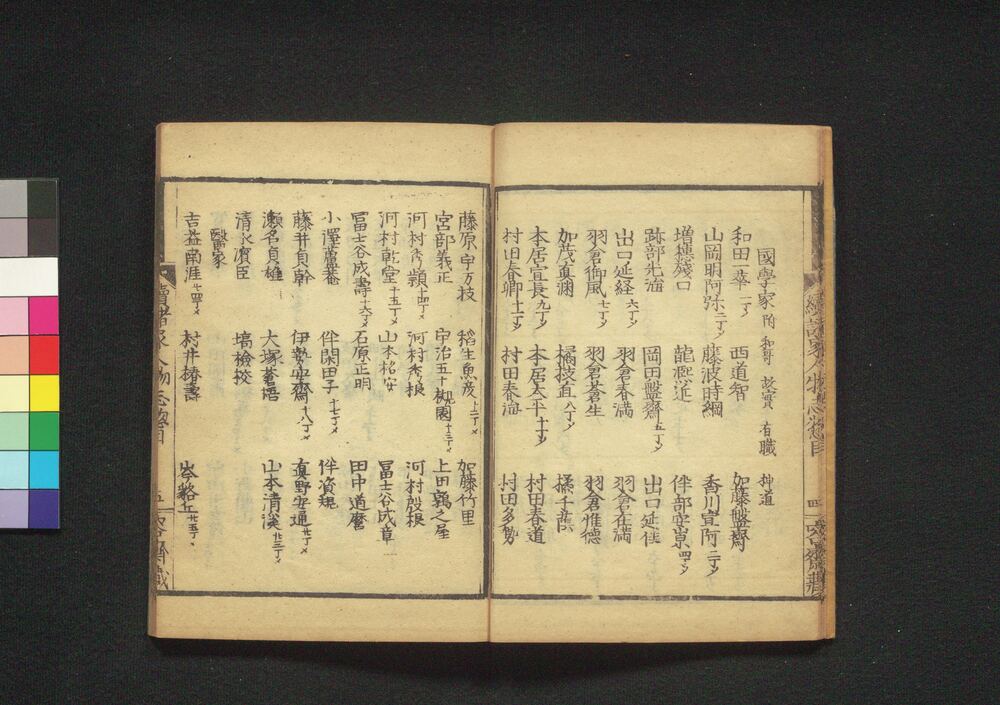 國學家 附 和哥 故實 有職 神道
和田一華 一丁メ 西道智 加藤盤齋
山岡明阿弥 二丁メ 藤波時綱 香川宣阿 二丁メ
増穂残口 龍熙近 伴部安崇 四丁メ
跡部光海 岡田盤齋 五丁メ 出口延佳
出口延経 六丁メ 羽倉春満 羽倉在満
羽倉御風 七丁メ 羽倉蒼生 羽倉惟德
加茂真淵 橘枝直 八丁メ 橘千蔭
本居宣長 九丁メ 本居大平 十丁メ 村田春道
村田春郷 十一丁メ 村田春海 村田多勢
四
藤原宇万枝 稻生魚彦 十二丁メ 加藤竹里
宮部義正 宇治五十槻園 十三丁メ 上田鶉之屋
河村秀穎 十四丁メ 河村秀根 河村殷根
河村乾堂 十五丁メ 山本格安 冨士谷成章
冨士谷成壽 十六丁メ 石原正明 田中道麿
小澤蘆菴 伴閑田子 十七丁メ 伴資規
藤井貞幹 伊勢安齋 十八丁メ
瀬名貞雄 大塚蒼梧 山本清溪
清水濱臣 塙檢挍
醫家
吉益南涯 村井椿壽 岑輅丘
五